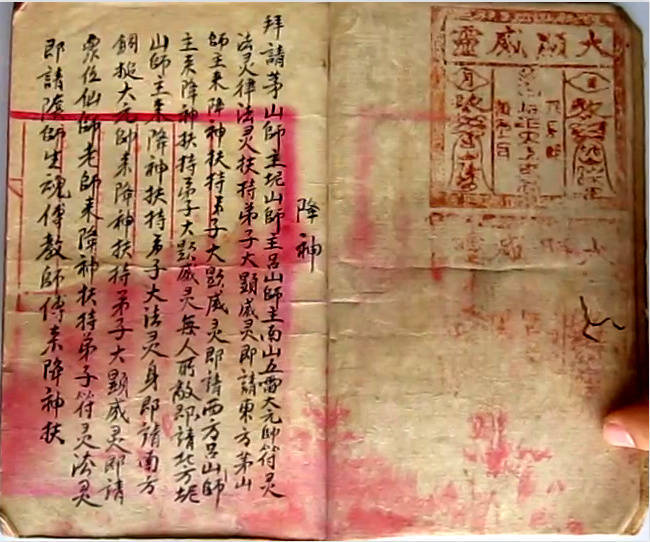 大顯威靈
降神
拜請茅山師主坭山師主呂山師主南山五雷大元帥符灵
法灵律法灵扶持弟子大顯威灵即請東方茅山
師主來降神扶持弟子大显威灵即請西方呂山師
主來降神扶持弟子大显威灵無人所敵即請北方坭
山師主來降神扶持弟子大法灵身即請南方
銅搥大元帥來降神扶持弟子大顯威灵即請
眾位仙師老師來降神扶持弟子符灵法灵
即請陰師生魂傳教師傅來降神扶